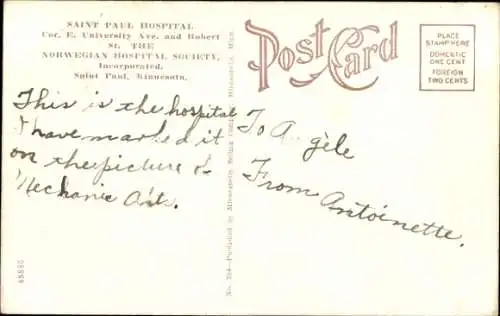 SAINT PAUL HOSPITAL
Cor. E. University Ave. and Robert
St. THE
NORWEGIAN HOSPITAL SOCIETY,
Incorporated.
Saint Paul, Minnesota.
This is the hospital
I have marked it
on the picture of
Mechanic Arts.
Post Card
PLACE
STAMP HERE
DOMESTIC
ONE CENT
FOREIGN
TWO CENTS
To Angèle
From Antoinette.
Minneapolis, Minn.
45880